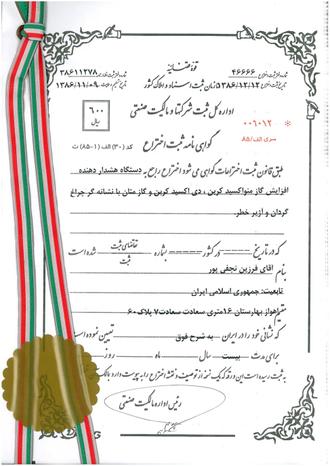 قوه قضائیه
شماره ثبت اختراع: ۴۶۶۶۶
سازمان ثبت اسناد و املاک کشور
۳۸۶۱۱۲۷۸
تاریخ ثبت اختراع: ۱۳۸۶/۱۲/۱۲
۱۳۸۶/۱۱/۰۹
اداره کل ثبت شرکتها و مالکیت صنعتی
۶۰۰
ریال
گواهی نامه ثبت اختراع
سری الف/۸۵
کد (۳۰) الف (۱-۸۵) ث
طبق قانون ثبت اختراعات گواهی می شود اختراع راجع به دستگاه هشدار دهنده
افزایش گاز منواکسید کربن ، دی اکسید کربن و گاز متان با نشانه گر چراغ
گردان و آژیر خطر.
که در تاریخ ----- در کشور ----- بشماره ----- تقاضای ثبت / ثبت شده است
بنام آقای فرزین نجفی پور
تابعیت: جمهوری اسلامی ایران
مقیم اهواز بهارستان ۱۶متری سعادت سعادت۷ پلاک۶۰
که نشانی خود را در ایران به شرح فوق تعیین نموده است
برای مدت بیست سال ماه روز
به ثبت رسیده است این ورقه که یک نسخه از توصیف و نقشه اختراع را به پیوست دارد
رئیس اداره مالکیت صنعتی